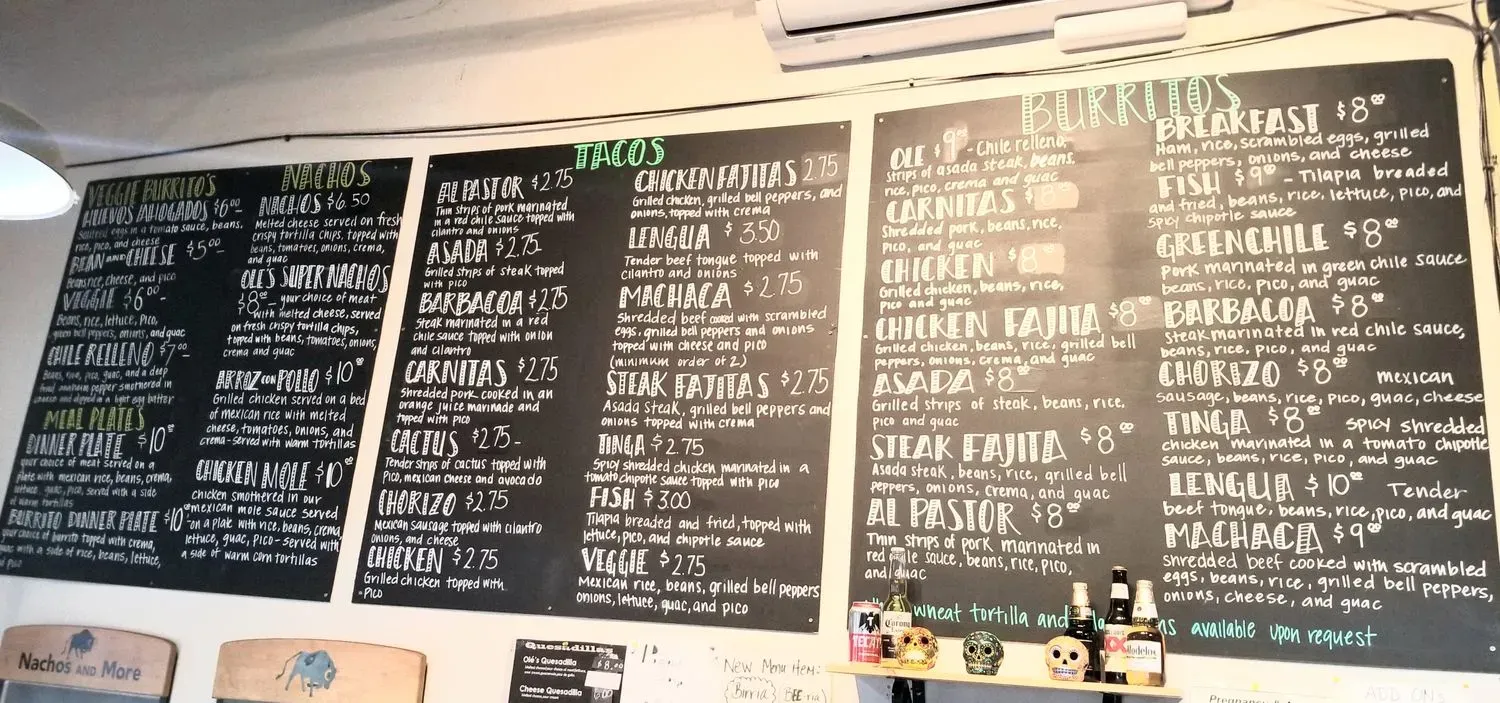 VEGGIE BURRITO'S
HUEVOS AHOGADOS $6.00-
Sauteed eggs in a tomato sauce, beans,
rice, pico, and cheese
BEAN AND CHEESE $5.00-
Beans, rice, cheese, and pico
VEGGIE $6.00-
Beans, rice, lettuce, pico,
green bell peppers, onions, and guac
CHILE RELLENO $7.00-
Beans, rice, pico, guac, and a deep
fried anaheim pepper smothered in
cheese and dipped in a light egg batter
MEAL PLATES
DINNER PLATE $10.00
your choice of meat served on a
plate with mexican rice, beans, crema,
lettuce, guac, pico, served with a side
of warm tortillas
BURRITO DINNER PLATE $10.00
your choice of burrito topped with crema,
guac with a side of rice, beans, lettuce,
NACHOS
NACHOS $6.50
Melted cheese served on fresh
crispy tortilla chips, topped with
beans, tomatoes, onions, crema,
and guac
OLE'S SUPER NACHOS
$8.00- your choice of meat
with melted cheese, served
on fresh crispy tortilla chips,
topped with beans, tomatoes, onions,
crema and guac
ARROZ CON POLLO $10.00
Grilled chicken served on a bed
of mexican rice with melted
cheese, tomatoes, onions, and
crema-served with warm tortillas
CHICKEN MOLE $10.00
chicken smothered in our
mexican mole sauce served
on a plate with rice, beans, crema,
lettuce, guac, pico-served with
a side of warm corn tortillas
TACOS
AL PASTOR $2.75
Thin strips of pork marinated
in a red chile sauce topped with
cilantro and onions
ASADA $2.75
Grilled strips of steak topped
with pico
BARBACOA $2.75
Steak marinated in a red
chile sauce topped with onion
and cilantro
CARNITAS $2.75
Shredded pork cooked in an
orange juice marinade and
topped with pico
CACTUS $2.75-
Tender strips of cactus topped with
pico, mexican cheese and avocado
CHORIZO $2.75
Mexican sausage topped with cilantro
onions, and cheese
CHICKEN $2.75
Grilled chicken topped with
pico
CHICKEN FAJITAS 2.75
Grilled chicken, grilled bell peppers, and
onions, topped with crema
LENGUA $3.50
Tender beef tongue topped with
cilantro and onions
MACHACA $2.75
Shredded beef cooked with scrambled
eggs, grilled bell peppers and onions
topped with cheese and pico
(minimum order of 2)
STEAK FAJITAS $2.75
Asada steak, grilled bell peppers and
onions topped with crema
TINGA $2.75
Spicy shredded chicken marinated in a
tomato chipotle sauce topped with pico
FISH $3.00
Tilapia breaded and fried, topped with
lettuce, pico, and chipotle sauce
VEGGIE $2.75
Mexican rice, beans, grilled bell peppers
onions, lettuce, guac, and pico
BURRITOS
OLE $9.00 - Chile relleno,
strips of asada steak, beans,
rice, pico, crema and guac
CARNITAS $8.00
Shredded pork, beans, rice,
pico, and guac
CHICKEN $8.00
Grilled chicken, beans, rice,
pico and guac
CHICKEN FAJITA $8.00
Grilled chicken, beans, rice, grilled bell
peppers, onions, crema, and guac
ASADA $8.00
Grilled strips of steak, beans, rice,
pico and guac
STEAK FAJITA $8.00
Asada steak, beans, rice, grilled bell
peppers, onions, crema, and guac
AL PASTOR $8.00
Thin strips of pork marinated in
red chile sauce, beans, rice, pico,
and guac
BREAKFAST $8.00
Ham, rice, scrambled eggs, grilled
bell peppers, onions, and cheese
FISH $9.00 - Tilapia breaded
and fried, beans, rice, lettuce, pico, and
spicy chipotle sauce
GREEN CHILE $8.00
pork marinated in green chile sauce
beans, rice, pico, and guac
BARBACOA $8.00
steak marinated in red chile sauce,
beans, rice, pico, and guac
CHORIZO $8.00 mexican
sausage, beans, rice, pico, guac, cheese
TINGA $8.00 spicy shredded
chicken marinated in a tomato chipotle
sauce, beans, rice, pico, and guac
LENGUA $10.00 Tender
beef tongue, beans, rice, pico, and guac
MACHACA $9.00
shredded beef cooked with scrambled
eggs, beans, rice, grilled bell peppers,
onions, cheese, and guac
wheat tortilla and available upon request
Nachos AND More
Quesadillas
Olé's Quesadilla $8.00
Cheese Quesadilla 6.00
New Menu Item:
Birria (BEE-ria)
TECATE
Corona
XX
Modelo
ADD ONs